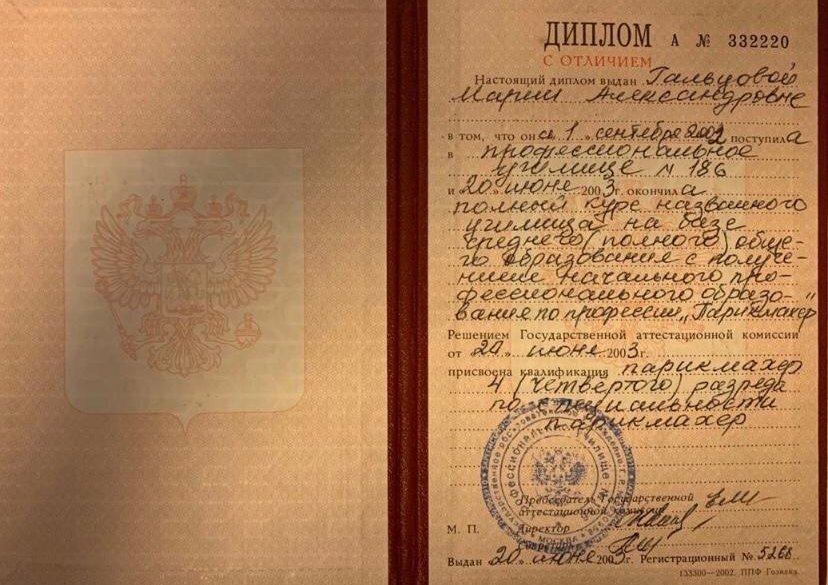 ДИПЛОМ А № 332220
С ОТЛИЧИЕМ
Настоящий диплом выдан Гальцовой
Марии Александровне
в том, что она „1" сентября 2002 поступила
в профессиональное
училище № 186
и 20 июня 2003г. окончила
полный курс названного
училища на базе
среднего (полного) обще-
го образования с получе-
нием начального про-
фессионального образо-
вания по профессии „Парикмахер"
Решением Государственной аттестационной комиссии
от „20" июня 2003г.
присвоена квалификация парикмахер
4 (четвертого) разряда
по специальности
парикмахер
Председатель Государственной
аттестационной комиссии
М. П. Директор
МОСКВА
Выдан „20" июня 2003г. Регистрационный № 5268
133300—2002. ППФ Гознака.